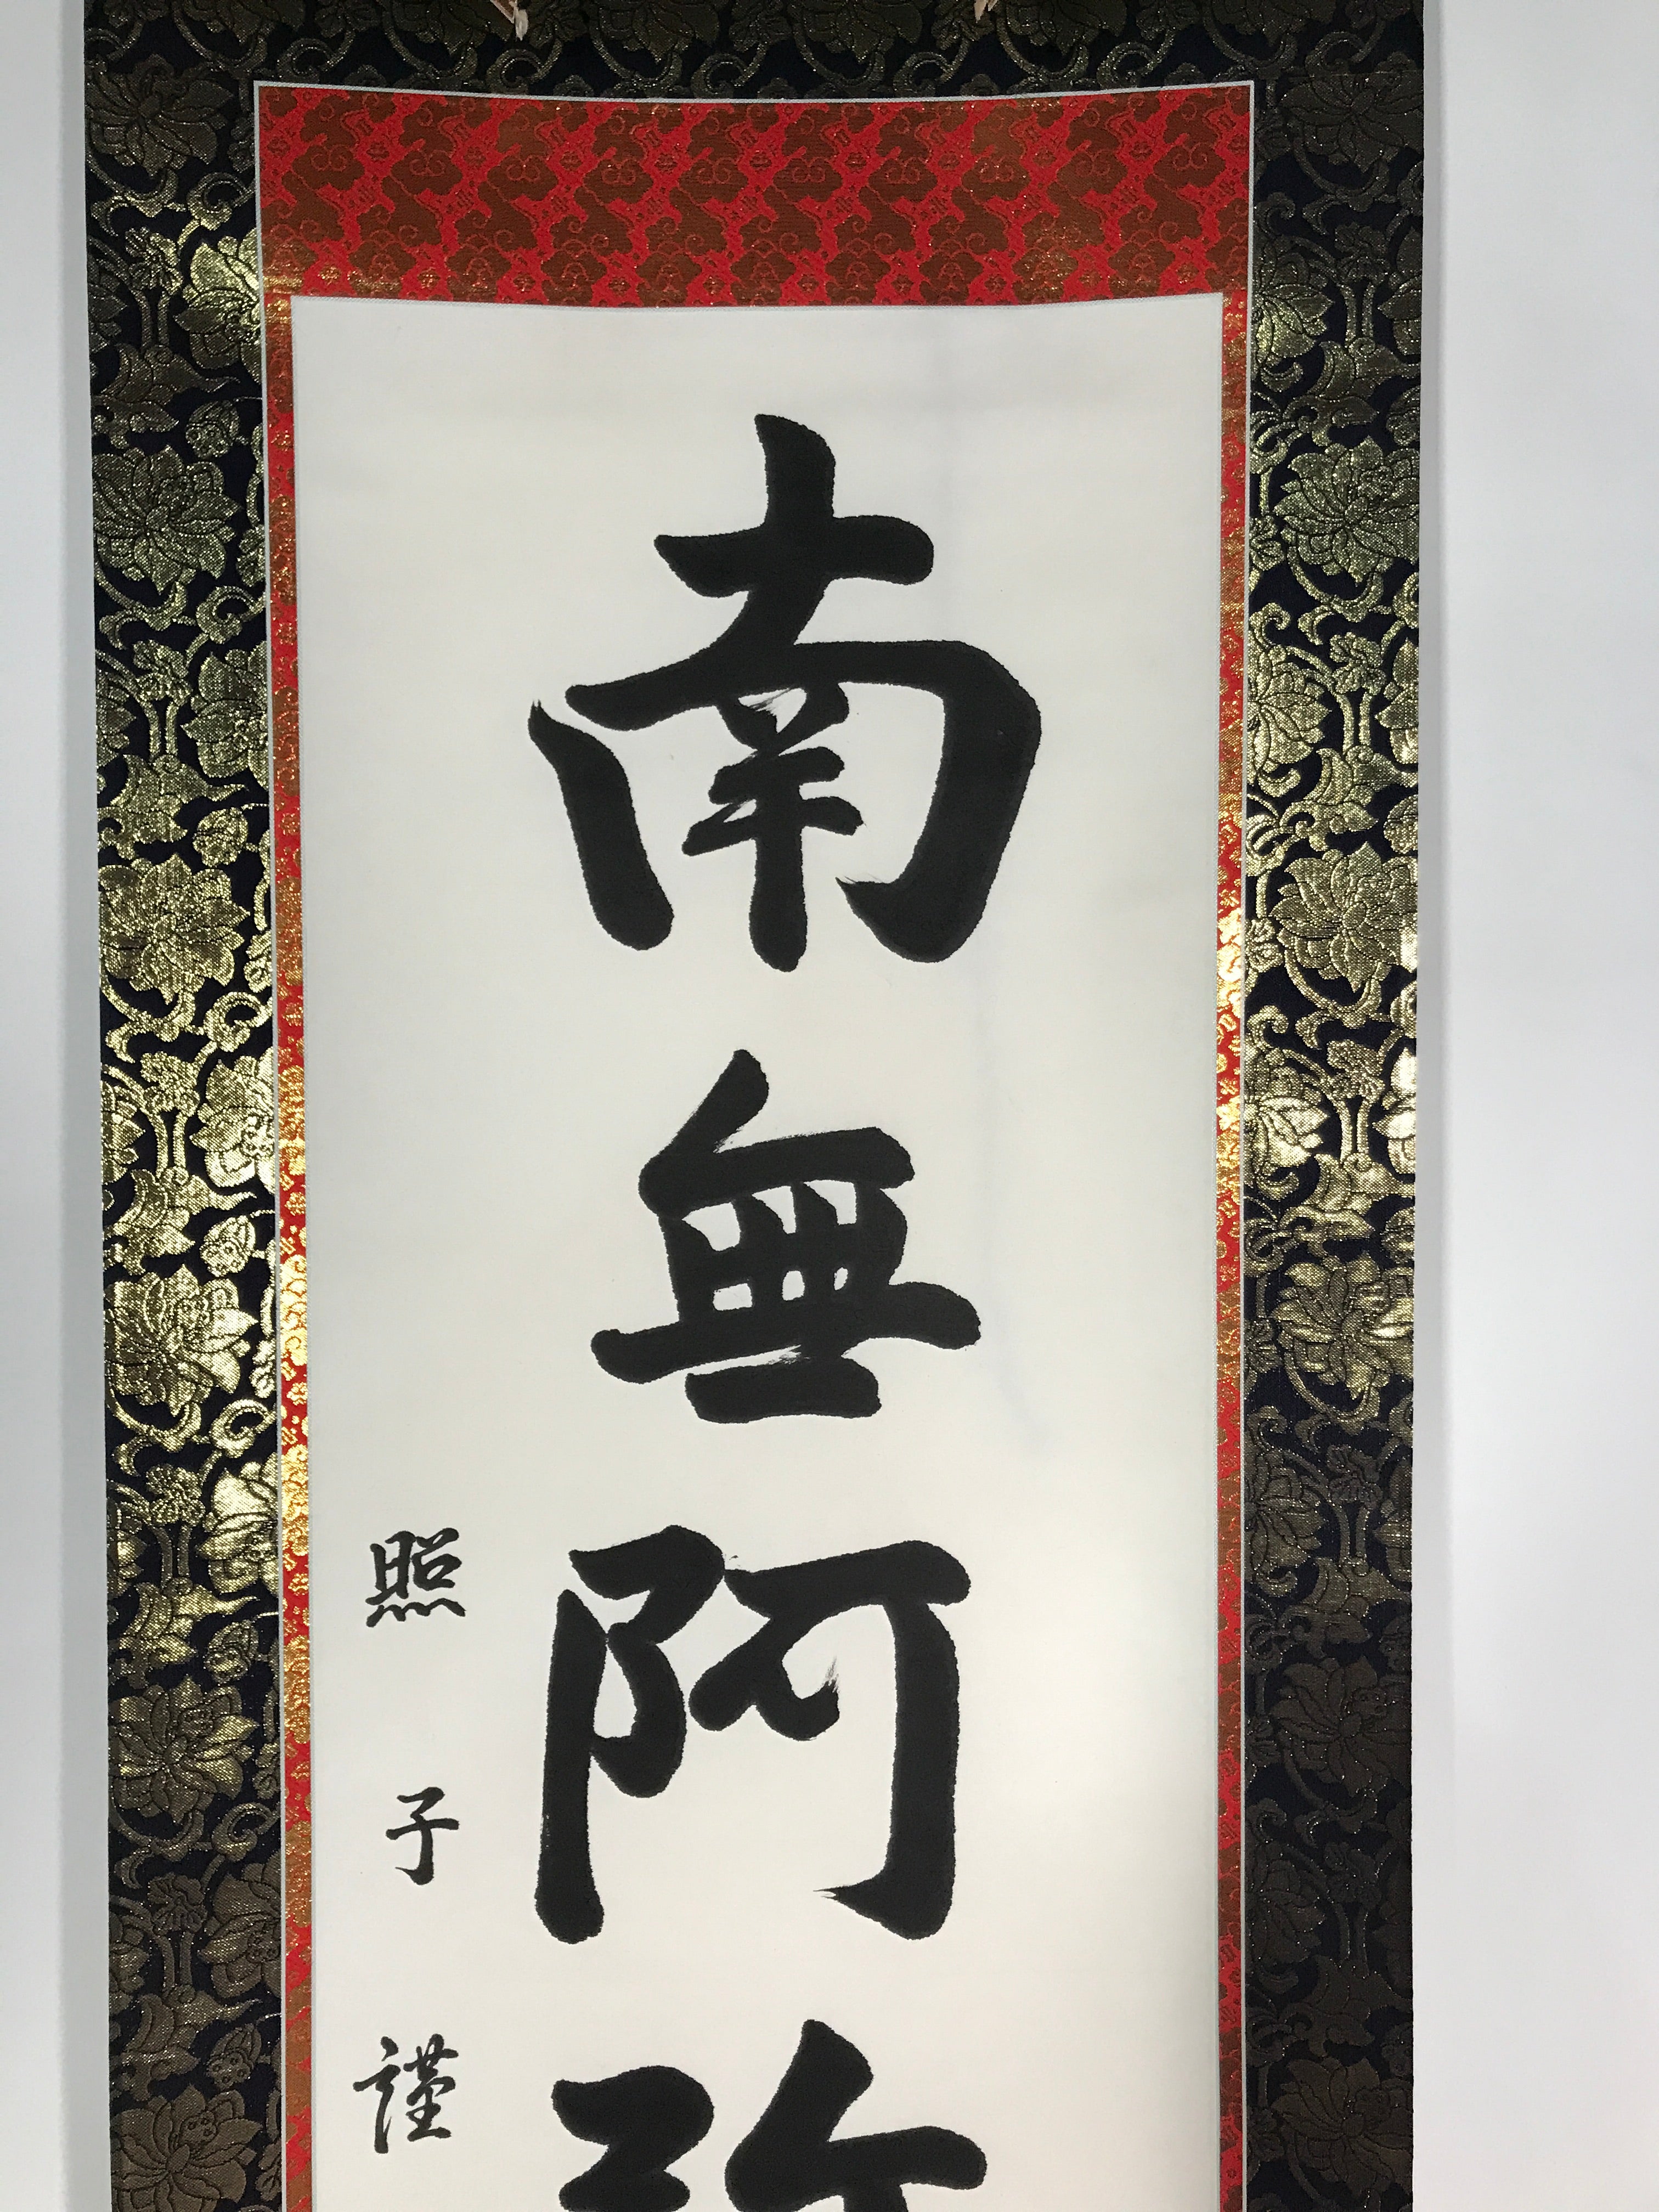 南無阿弥
照子謹